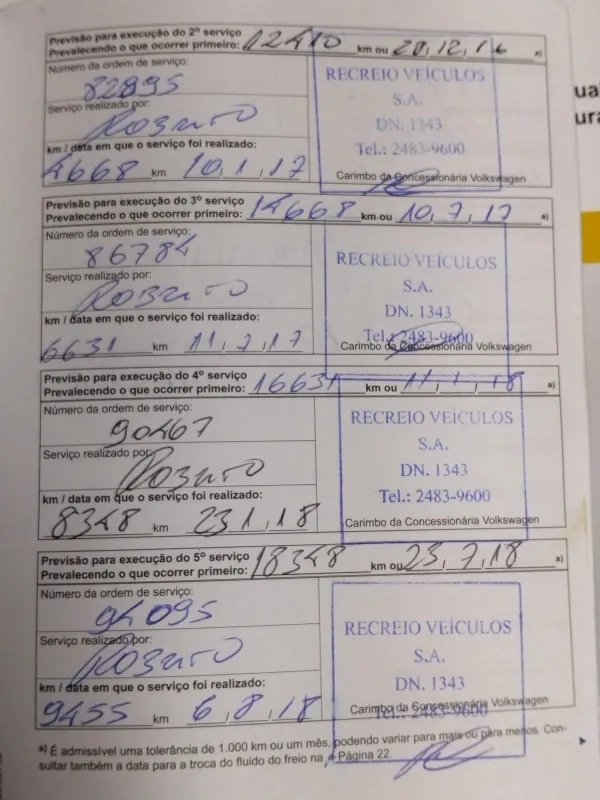 Previsão para execução do 2º serviço
Prevalecendo o que ocorrer primeiro: 12410 km ou 20,12,16 a)
Número da ordem de serviço:
82895
Serviço realizado por:
Roberto
km / data em que o serviço foi realizado:
4668 km 10,1,17
RECREIO VEÍCULOS
S.A.
DN. 1343
Tel.: 2483-9600
Carimbo da Concessionária Volkswagen
Previsão para execução do 3º serviço
Prevalecendo o que ocorrer primeiro: 14668 km ou 10,7,17 a)
Número da ordem de serviço:
86784
Serviço realizado por:
Roberto
km / data em que o serviço foi realizado:
6631 km 11,7,17
RECREIO VEÍCULOS
S.A.
DN. 1343
Tel.: 2483-9600
Carimbo da Concessionária Volkswagen
Previsão para execução do 4º serviço
Prevalecendo o que ocorrer primeiro: 16631 km ou 11,1,18 a)
Número da ordem de serviço:
90467
Serviço realizado por:
Roberto
km / data em que o serviço foi realizado:
8348 km 23,1,18
RECREIO VEÍCULOS
S.A.
DN. 1343
Tel.: 2483-9600
Carimbo da Concessionária Volkswagen
Previsão para execução do 5º serviço
Prevalecendo o que ocorrer primeiro: 18348 km ou 23,7,18 a)
Número da ordem de serviço:
94095
Serviço realizado por:
Roberto
km / data em que o serviço foi realizado:
9455 km 6,8,18
RECREIO VEÍCULOS
S.A.
DN. 1343
Tel.: 2483-9600
Carimbo da Concessionária Volkswagen
a) É admissível uma tolerância de 1.000 km ou um mês, podendo variar para mais ou para menos. Con-
sultar também a data para a troca do fluido do freio na Página 22.